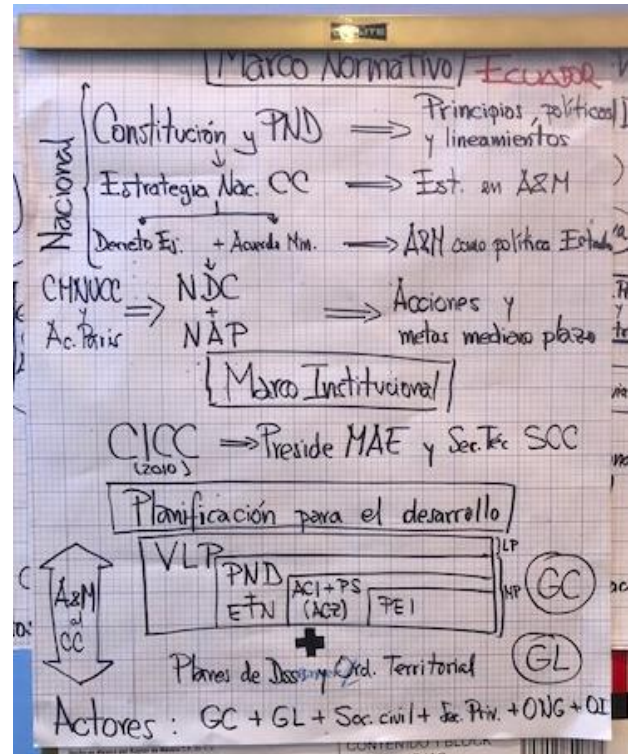 Marco Normativo / ECUADOR
Nacional
Constitución y PND ⇒ Principios, políticas y lineamientos
Estrategia Nac. CC ⇒ Est. en A&M
Decreto Ej. + Acuerdo Min. ⇒ A&M como política Estado
CMNUCC y Ac. París ⇒ NDC + NAP ⇒ Acciones y metas mediano plazo
Marco Institucional
CICC ⇒ Preside MAE y Sec. Tec SCC
(2010)
Planificación para el desarrollo
VLP
LP
PND + ETN
ACI + PS (ACZ)
PEI
MP
GC
A&M al CC
+
Planes de Des y Ord. Territorial
GL
Actores : GC + GL + Soc. civil + Sec. Priv. + ONG + OI
CONTENIDO 1 BLOCK